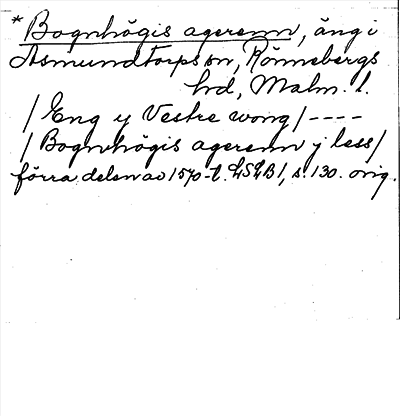 * Bognhögis agerenn, äng i
Asmundtorps sn, Rönnebergs
hd, Malm. l.
/ Eng y Vestre wong / ----
/ Bognhögis agerenn y less /
förra delen av 1570-t. LSLB1, s. 130. orig.